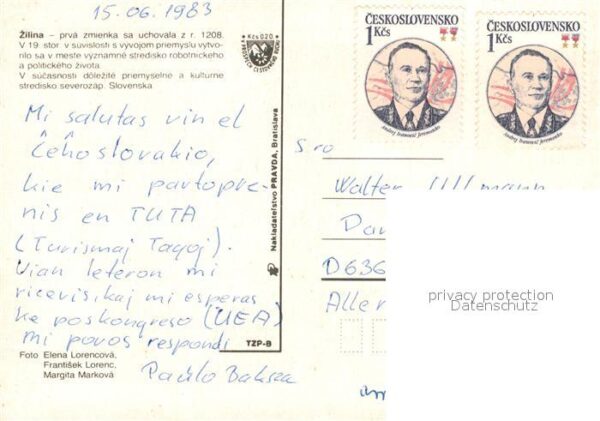 15.06.1983
Žilina – prvá zmienka sa uchovala z r. 1208.
V 19. stor. v súvislosti s vývojom priemyslu vytvo-
rilo sa v meste významné stredisko robotníckeho
a politického života.
V súčasnosti dôležité priemyselné a kultúrne
stredisko severozáp. Slovenska.
Kčs 0,20
Mi salutas vin el
Ĉeĥoslovakio,
kie mi partopre-
nis en TUTA
(Turismaj Tagoj).
Vian leteron mi
ricevis, kaj mi esperas
ke poskongreso (UEA)
mi povos respondi
Foto Elena Lorencová,
František Lorenc,
Margita Marková
Nakladateľstvo PRAVDA, Bratislava
TZP-B
ČESKOSLOVENSKO
1 Kčs
Andrej Ivanovič Jeremenko
ČESKOSLOVENSKO
1 Kčs
Andrej Ivanovič Jeremenko
S-ro
Walter Ullmann
D636
privacy protection
Datenschutz